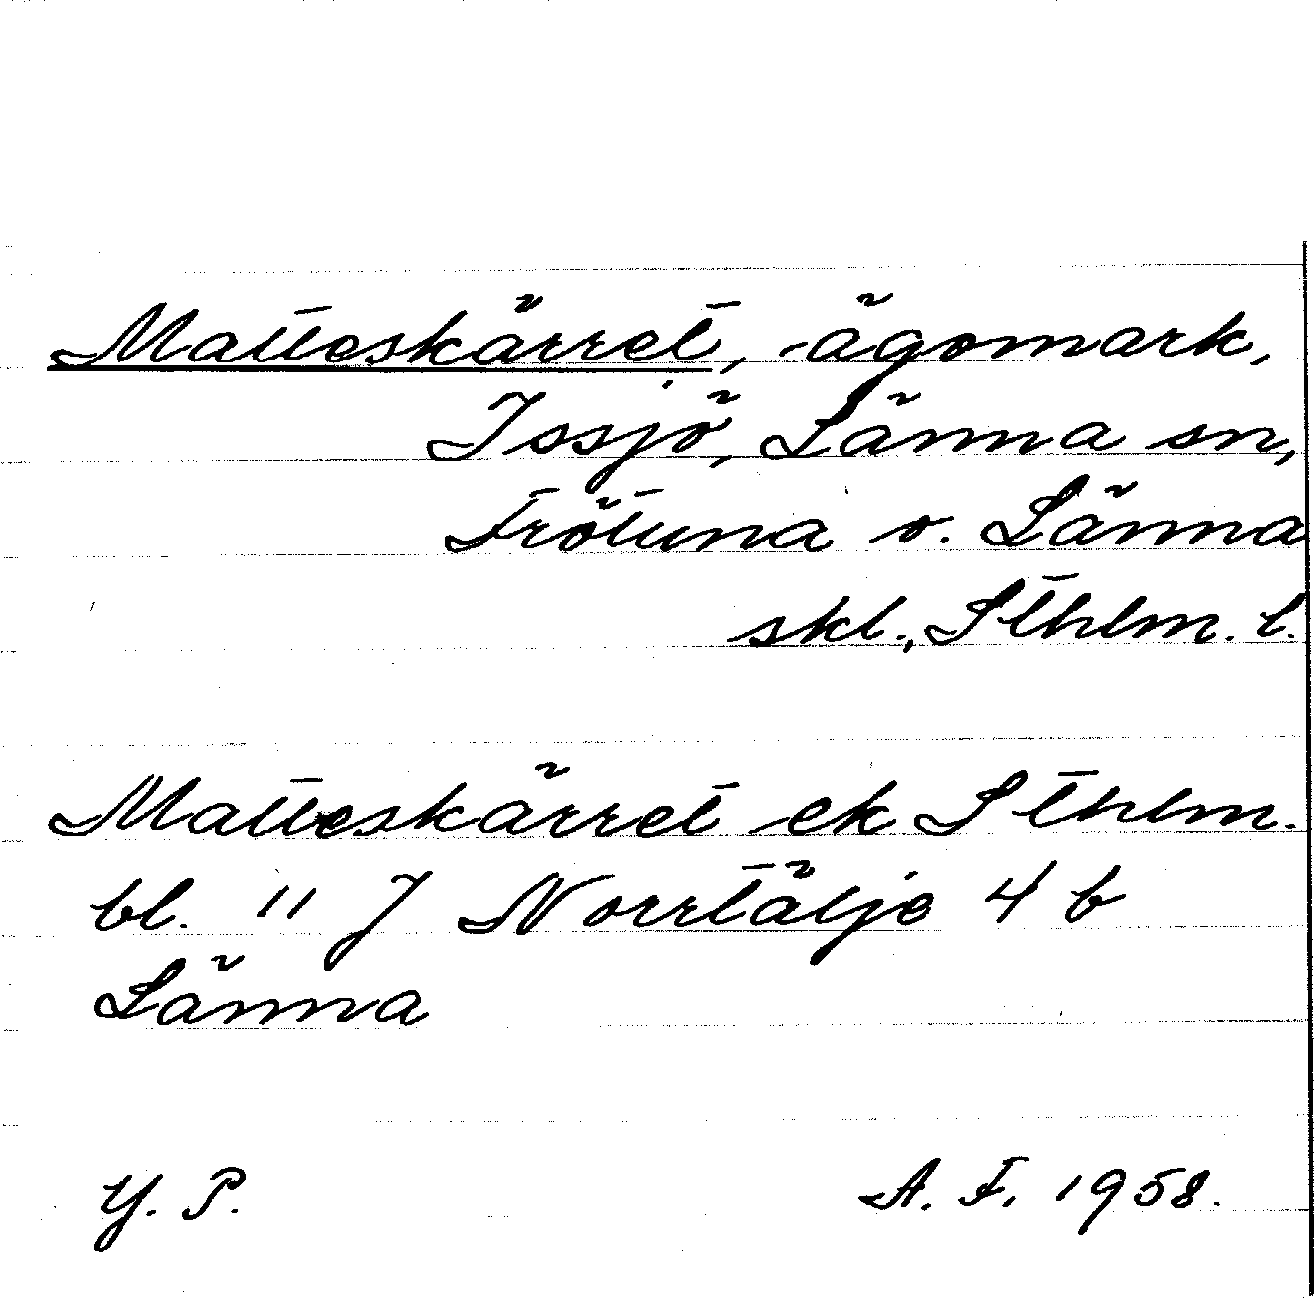 Matteskärret, ägomark,
Issjö, Länna sn,
Frötuna o. Länna
skl., Sthlm. l.
Matteskärret ek Sthlm.
bl. 11 J Norrtälje 4 b
Länna
Y. P. A. F. 1958.